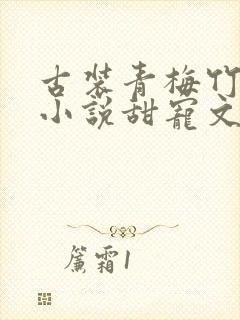 古装青梅竹
小说甜宠文
簾霜1